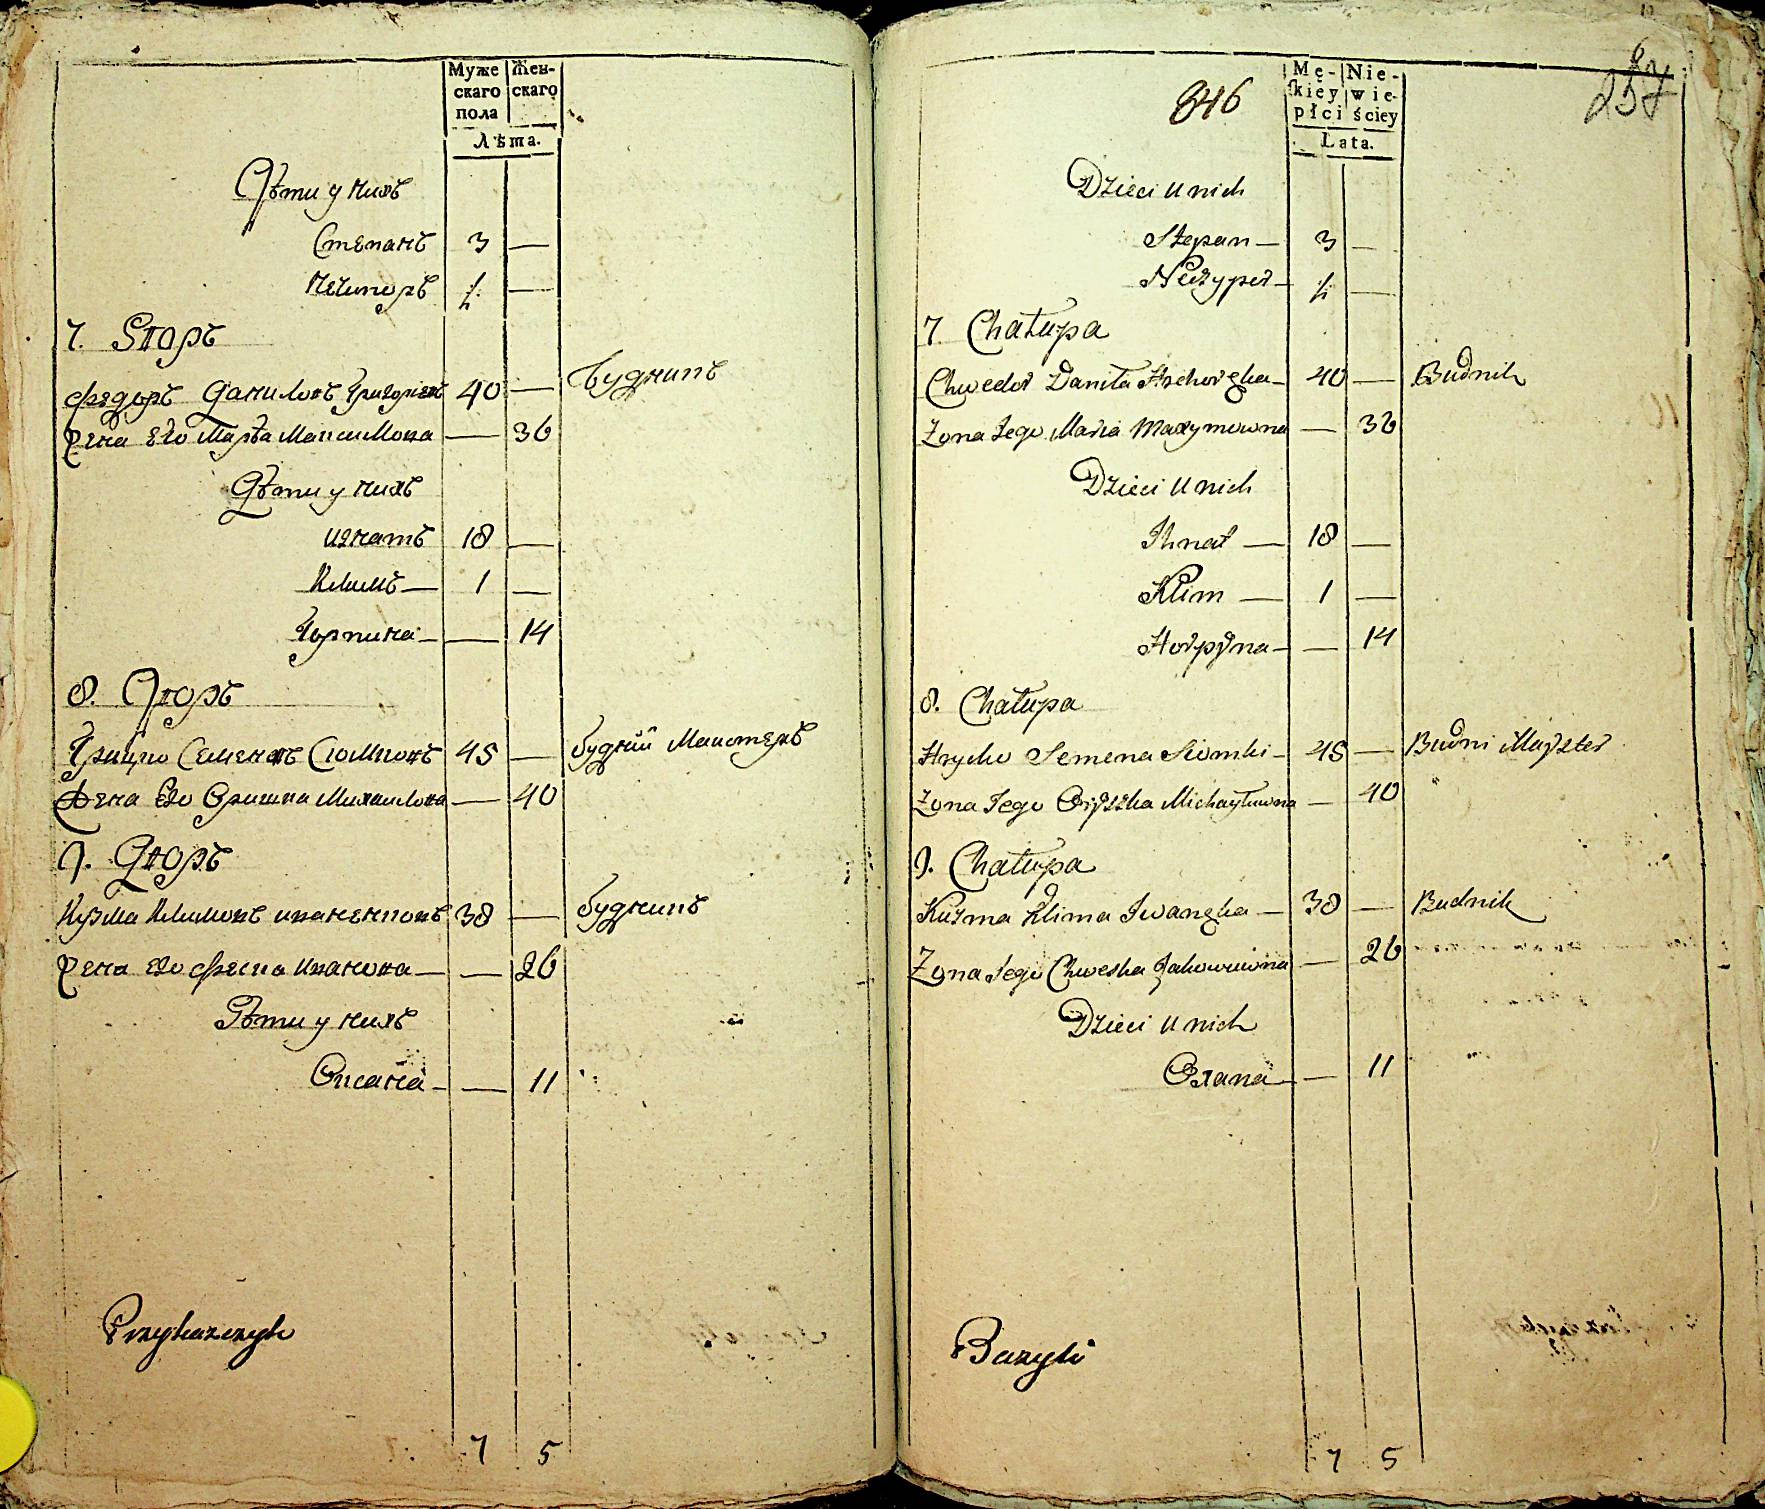 Муже Жен-
скаго скаго
пола
Лѣта.
Дѣти у нихъ
Степанъ 3 —
Нечипоръ ½ —
7. Дворъ
Федоръ Даниловъ Григориевъ 40 — Будникъ
Жена Его Марѣа Максимова — 36
Дѣти у нихъ
Игнатъ 18 —
Климъ — 1 —
Горпина — — 14
8. Дворъ
Грицко Семеновъ Сюмковъ 45 — будний Маистеръ
Жена Его Оришка Михаилова — 40
9. Дворъ
Кузма Климовъ иваненковъ 38 — будникъ
Жена Его Феска Иванова — — 26
Дѣти у нихъ
Оксана — — 11
Przykazczyk
7 5
846
257
Mę- Nie-
skiey wie-
płci ściey
Lata.
Dzieci u nich
Stepan — 3 —
Neczypor — ½ —
7. Chałupa
Chwedor Daniła Hrehorgka — 40 — Budnik
Zona Jego Maria Maxymowna — 36
Dzieci u nich
Ihnat — 18 —
Klim — 1 —
Horpyna — — 14
8. Chałupa
Hrycko Semena Siomki — 45 — Budni Mayster
Zona Jego Oryszka Michayłowna — 40
9. Chałupa
Kuzma Klima Iwangka — 38 — Budnik
Zona Jego Chweska Jakowiwna — 26
Dzieci u nich
Oxana — — 11
Bazyli
7 5